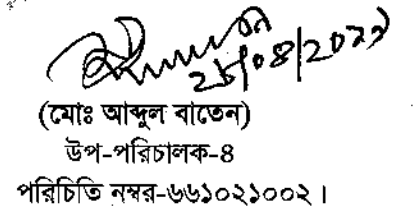 (মোঃ আব্দুল বাতেন)
উপ-পরিচালক-৪
পরিচিতি নম্বর-৬৬১০২১০০২।